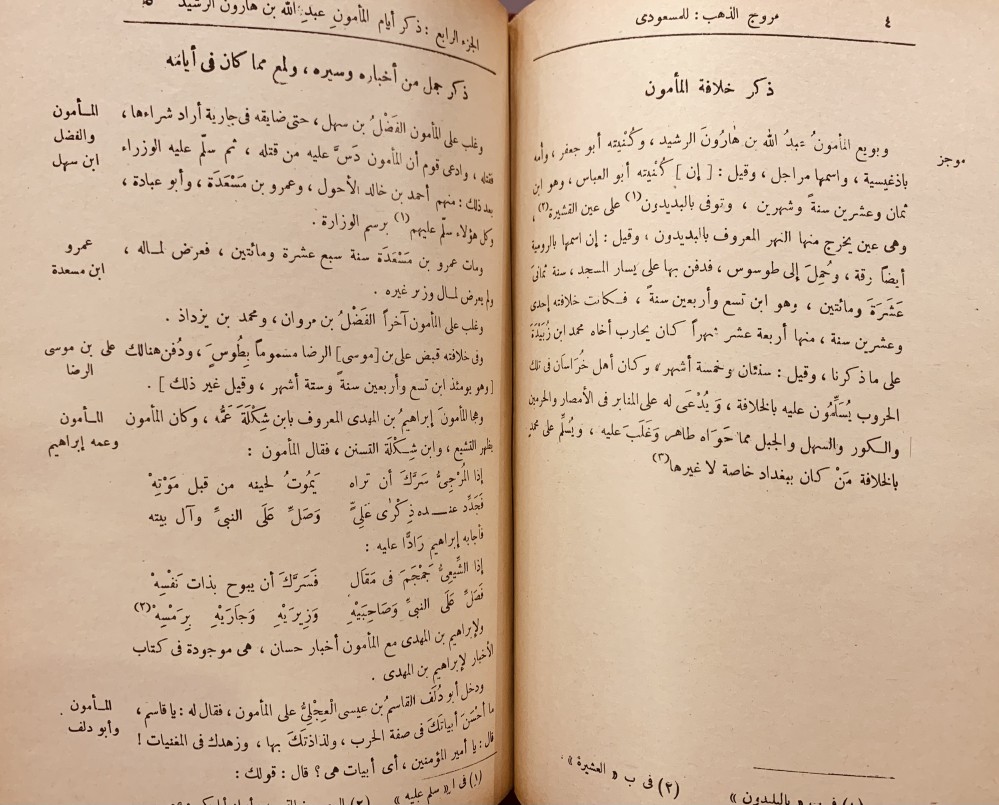 ٤
مروج الذهب : للمسعودى
ذكر خلافة المأمون
موجز
وبويع المأمونُ عبدُ الله بن هَارُونَ الرشيد ، وكُنْيته أبو جعفر ، وأمه
باذغيسية ، واسمها مراجل ، وقيل : [ إن ] كُنْيته أبو العباس ، وهو ابن
ثمان وعشرين سنةً وشهرين ، وتوفى بالبديدون(١) على عين القشيرة(٢) ،
وهى عين يخرج منها النهر المعروف بالبديدون ، وقيل : إن اسمها بالرومية
أيضاً رقة ، وحُمِلَ إلى طوسوس ، فدفن بها على يسار المسجد ، سنة ثمانىَ
عَشَرَةَ ومائتين ، وهو ابن تسع وأربعين سنةً ، فكانت خلافته إحدى
وعشرين سنة ، منها أربعة عشر شهراً كان يحارب أخاه محمد ابن زُبَيْدَةَ
على ما ذكرنا ، وقيل : سنتان وخمسة أشهر ، وكان أهل خُرَاسَان فى تلك
الحروب يُسَلِّمُون عليه بالخلافة ، وَيُدْعَى له على المنابر فى الأمصار والحرمين
والكور والسهل والجبل مما حَوَاه طاهر وَغَلَبَ عليه ، ويُسلِّم على محمد
بالخلافة مَنْ كان ببغداد خاصة لا غيرها(٣)
(٢) فى ب « العشيرة » .
« بالبليدون »
الجزء الرابع : ذكر أيام المأمون عبد الله بن هارون الرشيد
٥
ذكر جمل من أخباره وسيره ، ولمع مما كان فى أيامه
المـأمون
والفضل
ابن سهل
وغلب على المأمون الفَضْلُ بن سهل ، حتى ضايقه فى جارية أراد شراءها ،
فقتله ، وادعى قوم أن المأمون دَسَّ عليه من قتله ، ثم سلّم عليه الوزراء
بعد ذلك : منهم أحمد بن خالد الأحول ، وعمرو بن مَسْعَدَة ، وأبو عبادة ،
وكل هؤلاء سلّم عليهم(١) برسم الوزارة .
عمرو
ابن مسعدة
ومات عمرو بن مَسْعَدَة سنة سبع عشرة ومائتين ، فعرض لماله ،
ولم يعرض لمال وزير غيره .
وغلب على المأمون آخراً الفَضْلُ بن مروان ، ومحمد بن يزداذ .
على بن موسى
الرضا
وفى خلافته قبض على بن [موسى] الرضا مسموماً بِطُوس َ، ودُفن هنالك
[ وهو يومئذ ابن تسع وأربعين سنةً وستة أشهر ، وقيل غير ذلك ] .
المـأمون
وعمه إبراهيم
وهجا المأمونَ إبراهيمُ بن المهدى المعروف بابن شِكْلَةَ عَمُّه ، وكان المأمون
يظهر التشيع ، وابن شِكْلَة التسنن ، فقال المأمون :
إذا المُرْجِىُّ سَرَّكَ أن تراه يَمُوتُ لحينه من قبل مَوْتِهْ
فَجَدِّد عنـــده ذِكْرٰى عَلِىٍّ وَصَلِّ عَلَى النبىِّ وآل بيته
فأجابه إبراهيم رَادًّا عليه :
إذا الشِّيعِىُّ جَمْجَمَ فى مَقَال فَسَرَّكَ أن يبوح بذات نَفْسِهْ
فَصَلِّ عَلَى النبىِّ وَصَاحِبَيْهِ وَزِيرَيْهِ وَجَارَيْهِ بِرَمْسِهْ(٢)
ولإبراهيم بن المهدى مع المأمون أخبار حسان ، هى موجودة فى كتاب
الأخبار لإبراهيم بن المهدى .
المـأمون
وأبو دلف
ودخل أبو دُلَفَ القاسمُ بن عيسى الْعِجْلِىُّ على المأمون ، فقال له : يا قاسم ،
ما أحْسَنَ أبياتَكَ فى صفة الحرب ، ولذاذتَكَ بها ، وزهدك فى المغنيات !
قال : يا أمير المؤمنين ، أى أبيات هى ؟ قال : قولك :
(١) فى ا « سلم عليه »